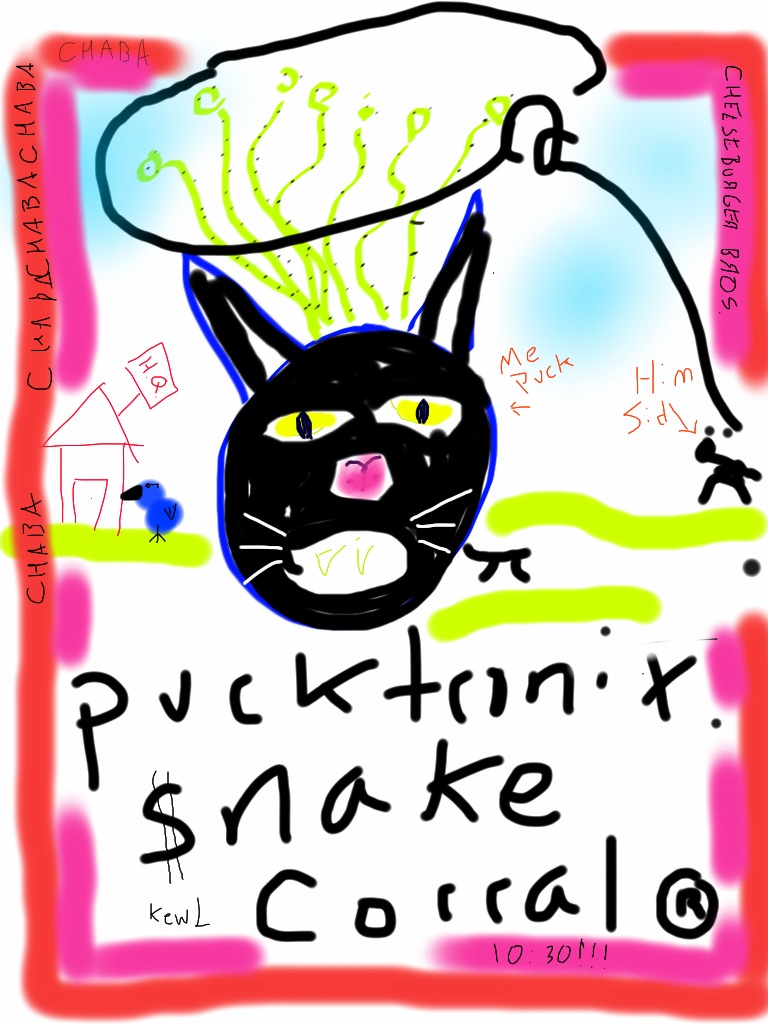 CHABA
CHABACHABACHABA
CHABA
CHELSEBURGER BROS.
HQ
Me
Puck
Him
Sid
pucktronix.
$nake
kewL
Corral®
10:30!!!